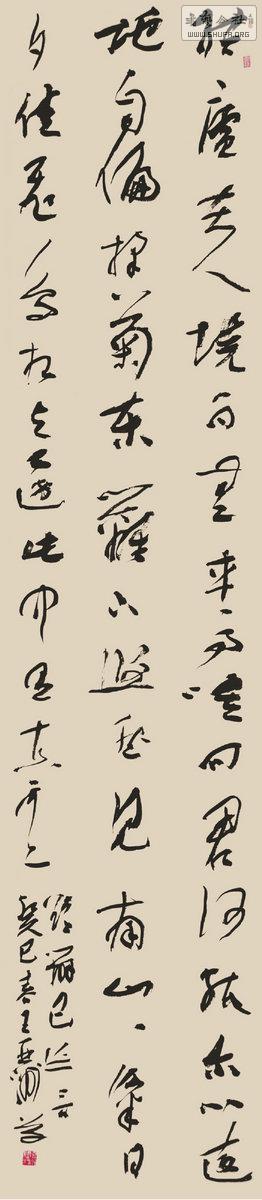 結廬在人境而無車馬喧問君何能尔心遠
地自偏採菊東籬下悠然見南山山氣日
夕佳飛鳥相與還此中有真意
欲辯已忘言
癸巳春王亞
WWW.SHUFA.ORG